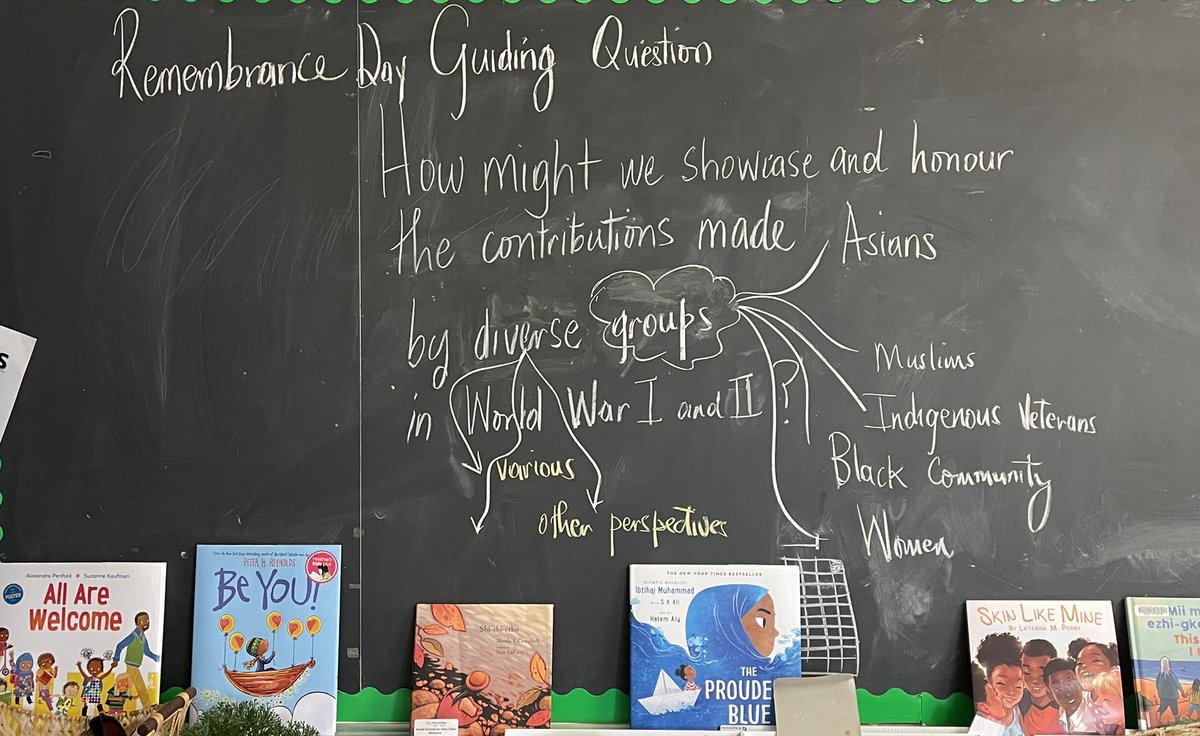 Remembrance Day Guiding Question
How might we showcase and honour
the contributions made
by diverse groups
in World War I and II ?
various
other perspectives
Asians
Muslims
Indigenous Veterans
Black Community
Women
S
Alexandra Penfold Suzanne Kaufman
All Are
Welcome
POSTER
PETER H. REYNOLDS
BE YOU!
Shi-shi-etko
Nicola I. Campbell
Kim LaFave
THE NEW YORK TIMES BESTSELLER
OLYMPIC MEDALIST
Ibtihaj Muhammad
WITH S. K. Ali
ART BY
Hatem Aly
THE
PROUDE
BLUE
SKIN LIKE MINE
BY LATASHIA M. PERRY
Mii m
ezhi-gke
This
I